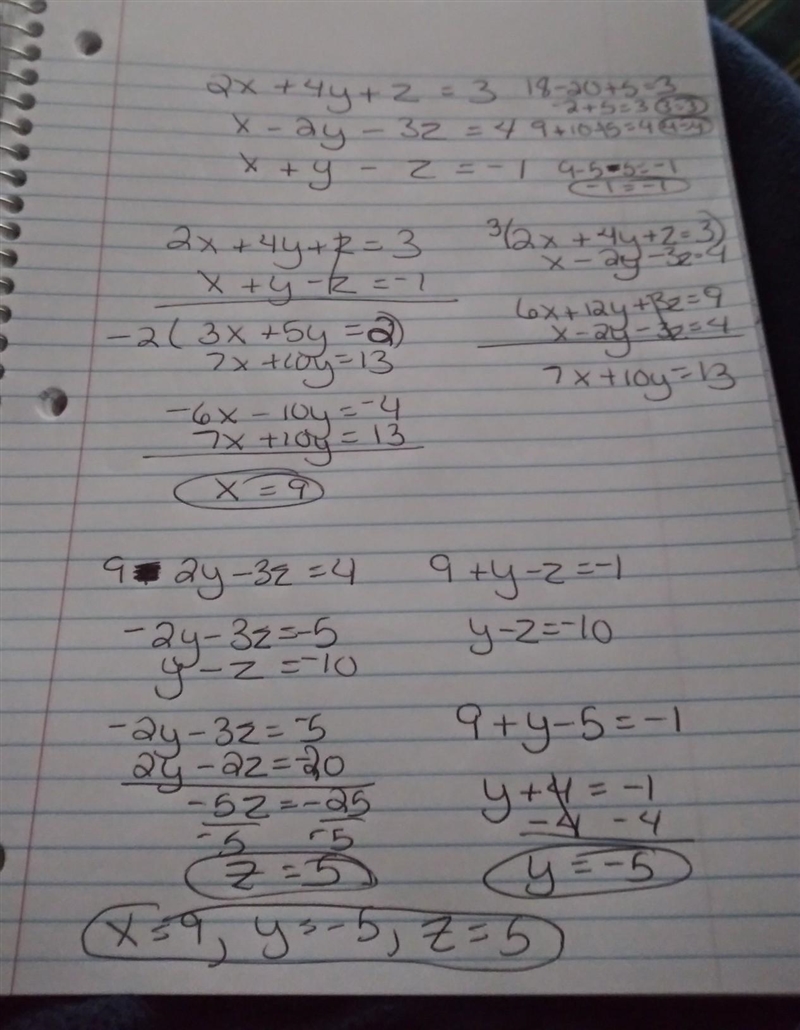 2x + 4y + z = 3 18-20+5=3
-2+5=3 3=3
x - 2y - 3z = 4 9+10+5=4 4=4
x + y - z = -1 9-5-5=-1
-1=-1
2x + 4y + z = 3
x + y - z = -1
-2(3x + 5y = 2)
7x + 10y = 13
-6x - 10y = -4
7x + 10y = 13
x = 9
3(2x + 4y + z = 3)
x - 2y - 3z = 4
6x + 12y + 3z = 9
x - 2y - 3z = 4
7x + 10y = 13
9 - 2y - 3z = 4
-2y - 3z = -5
y - z = -10
-2y - 3z = -5
2y - 2z = -20
-5z = -25
-5 -5
z = 5
9 + y - z = -1
y - z = -10
9 + y - 5 = -1
y + 4 = -1
-4 -4
y = -5
x = 9, y = -5, z = 5